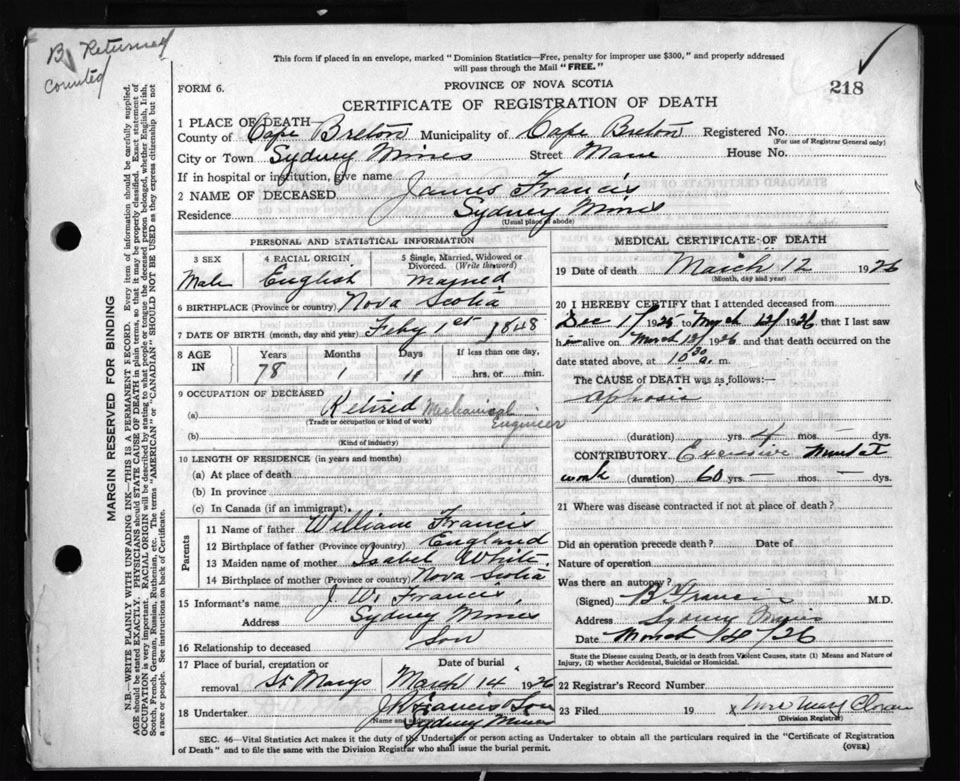 B Returned
Counted
This form if placed in an envelope, marked "Dominion Statistics—Free, penalty for improper use $300," and properly addressed
will pass through the Mail "FREE."
218
FORM 6.
PROVINCE OF NOVA SCOTIA
CERTIFICATE OF REGISTRATION OF DEATH
1 PLACE OF DEATH
County of Cape Breton Municipality of Cape Breton Registered No.
(For use of Registrar General only)
City or Town Sydney Mines Street Main House No.
If in hospital or institution, give name
2 NAME OF DECEASED James Francis
Residence Sydney Mines
(Usual place of abode)
PERSONAL AND STATISTICAL INFORMATION
3 SEX 4 RACIAL ORIGIN 5 Single, Married, Widowed or Divorced. (Write the word)
Male English Married
6 BIRTHPLACE (Province or country) Nova Scotia
7 DATE OF BIRTH (month, day and year) Feby 1st 1848
8 AGE IN Years Months Days If less than one day,
78 1 11 hrs. or min.
9 OCCUPATION OF DECEASED
(a) Retired Mechanical Engineer
(Trade or occupation or kind of work)
(b)
(Kind of industry)
10 LENGTH OF RESIDENCE (in years and months)
(a) At place of death
(b) In province
(c) In Canada (if an immigrant)
Parents
11 Name of father William Francis
12 Birthplace of father (Province or country) England
13 Maiden name of mother Isabel White
14 Birthplace of mother (Province or country) Nova Scotia
15 Informant's name J. W. Francis
Address Sydney Mines
16 Relationship to deceased Son
17 Place of burial, cremation or removal St Marys Date of burial March 14 1926
18 Undertaker J K Francis & Son
(Name and address) Sydney Mines
MEDICAL CERTIFICATE OF DEATH
19 Date of death March 12 1926
(Month, day and year)
20 I HEREBY CERTIFY that I attended deceased from
Dec 1/1925 to March 12/1926, that I last saw
him alive on March 12/1926 and that death occurred on the
date stated above, at 10 30 a. m.
The CAUSE of DEATH was as follows:—
Aphasia
(duration) yrs. 4 mos — dys.
CONTRIBUTORY Excessive Mental
work (duration) 60 yrs — mos — dys.
21 Where was disease contracted if not at place of death?
Did an operation precede death? Date of
Nature of operation
Was there an autopsy?
(Signed) B Francis M.D.
Address Sydney Mines
Date March 14/26
State the Disease causing Death, or in death from Violent Causes, state (1) Means and Nature of
Injury, (2) whether Accidental, Suicidal or Homicidal.
22 Registrar's Record Number
23 Filed 19 x Mrs Mary Cloran
(Division Registrar)
SEC. 46—Vital Statistics Act makes it the duty of the Undertaker or person acting as Undertaker to obtain all the particulars required in the "Certificate of Registration
of Death" and to file the same with the Division Registrar who shall issue the burial permit.
(OVER)
MARGIN RESERVED FOR BINDING
N.B.—WRITE PLAINLY WITH UNFADING INK—THIS IS A PERMANENT RECORD. Every item of information should be carefully supplied.
AGE should be stated EXACTLY. PHYSICIANS should STATE CAUSE OF DEATH in plain terms, so that it may be properly classified. Exact statement of
OCCUPATION is very important. RACIAL ORIGIN will be described by stating to what people or tongue the deceased person belonged, whether English, Irish,
Scotch, French, German, Russian, Ruthenian, etc. The terms "AMERICAN" or "CANADIAN" SHOULD NOT BE USED as they express citizenship but not
a race or people. See instructions on back of Certificate.